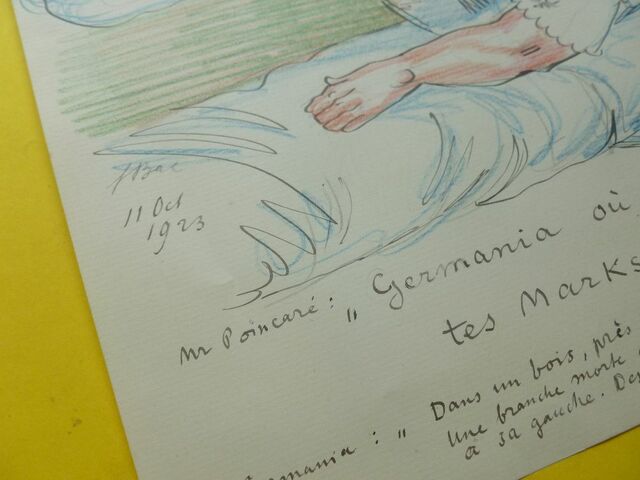 JBac
11 Oct
1923
Mr Poincaré : „ Germania où
tes Marks
Dans un bois, près
ermania : „ Une branche morte
à sa gauche. De